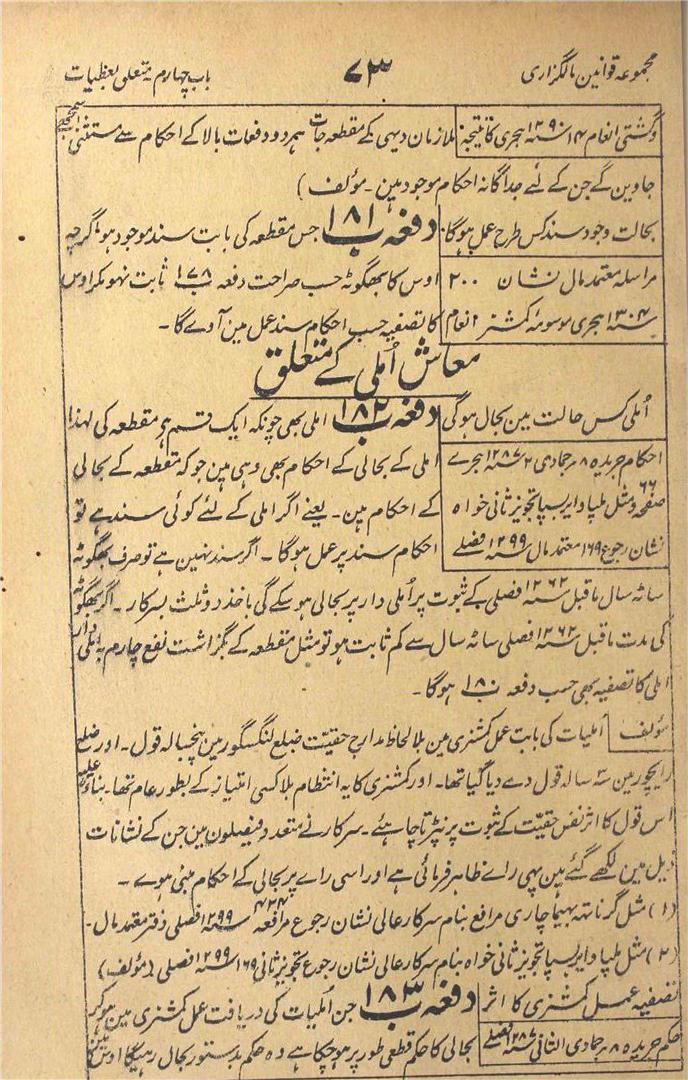 مجموعہ قوانین مالگزاری
۷۳
باب چہارم متعلق بعطیات
گشتی انعام ۱۴ سنہ ۱۲۹۰ ہجری کا نتیجہ
ملازمان دیہی کے مقطعہ جات ہر دو دفعات بالا کے احکام سے مستثنیٰ سمجھے
جاوین گے جن کے لئے جداگانہ احکام موجود ہین ۔ مؤلف )
بحالت وجود سند کس طرح عمل ہوگا
دفعہ ۱۸۱ ب جس مقطعہ کی بابت سند موجود ہو گرچہ
مراسلہ معتمد مال نشان ۲۰۰
اوس کا بھگوٹہ حسب صراحت دفعہ ۱۷۸ ب ثابت نہو مگر اوس
سنہ ۱۳۰۴ ہجری موسومہ کمشنر انعام
کا تصفیہ حسب احکام سند عمل مین آوے گا ۔
معاش اُملی کے متعلق
اُملی کس حالت مین بحال ہوگی
دفعہ ۱۸۲ ب املی بھی چونکہ ایک قسم ہے مقطعہ کی لہذا
احکام جریدہ ۸ جمادی ۲ سنہ ۱۲۸۷ ہجرے
املی کے بحالی کے احکام بھی وہی ہین جو کہ مقطعہ کے بحالی
صفحہ ۶۶ و مثل ملپا و ایرسپا تجویز ثانی خواہ
کے احکام ہین ۔ یعنے اگر املی کے لئے کوئی سند ہے تو
نشان رجوع ۱۶۹ معتمد مال سنہ ۱۲۹۹ فصلے
احکام سند پر عمل ہوگا ۔ اگر سند نہین ہے تو صرف بھگوٹہ
ساٹہ سال ماقبل سنہ ۱۲۶۲ فصلی کے ثبوت پر اُملی دار پر بحالی ہو سکے گی باخذ دو ثلث بسرکار ۔ اگر بھگوٹہ
کی مدت ماقبل سنہ ۱۲۶۲ فصلی ساٹہ سال سے کم ثابت ہو تو مثل مقطعہ کے بگزاشت نفع چارم بہ املی دار
املی کا تصفیہ بھی حسب دفعہ ۱۸۰ ب ہوگا ۔
مؤلف
اُملیات کی بابت عمل کمشنری مین بلا لحاظ مدارج حقیّت ضلع لنگسگور مین پنچسالہ قول ۔ اور ضلع
رایچور مین سہ سالہ قول دے دیا گیا تھا ۔ اور کمشنری کا یہ انتظام بلا کسی امتیاز کے بطور عام تھا ۔ بناءً علیہ
اس قول کا اثر نفس حقیّت کے ثبوت پر نپڑنا چاہئے ۔ سرکار نے متعدد فیصلون مین جن کے نشانات
ذیل مین لکھے گئے ہین یہی راے ظاہر فرمائی ہے اور اسی راے پر بحالی کے احکام مبنی ہوے ۔
(۱) مثل گرناتہ بہیماچاری مرافع بنام سرکار عالی نشان رجوع مرافعہ ۴۲۴ سنہ ۱۲۹۹ فصلی دفتر معتمد مال ۔
(۲) مثل ملپا و ایرسپا تجویز ثانی خواہ بنام سرکار عالی نشان رجوع تجویز ثانی ۱۶۹ سنہ ۱۲۹۹ فصلی (مؤلف)
تصفیہ عمل کمشنری کا اثر
دفعہ ۱۸۳ ب جن اُملیات کی دریافت عمل کمشنری مین ہو کر
حکم جریدہ ۸ جمادی الثانی سنہ ۱۲۸۷ فصلے
بحالی کا حکم قطعی طور پر ہو چکا ہے وہ حکم بدستور بحال رہیگا اوس مین